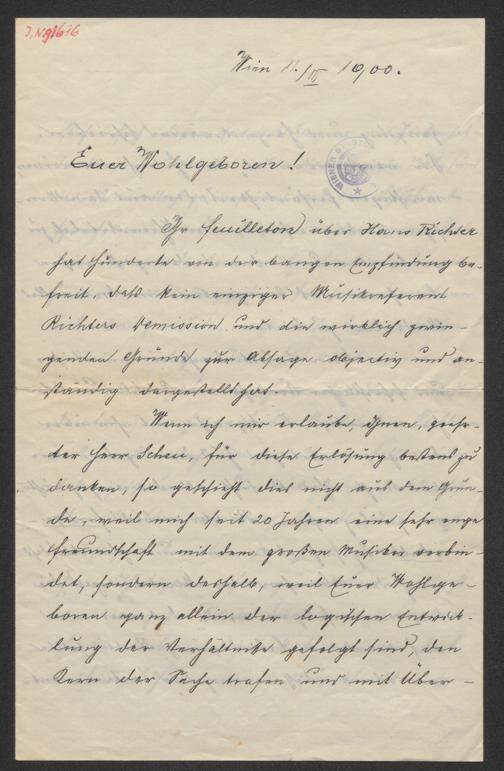 I.N. 91616
Wien 11./III 1900.
WIENER
Euer Wohlgeboren!
Ihr Feuilleton über Hans Richter
hat Hunderte von der bangen Empfindung be-
freit, daß kein einziger Musikreferent
Richters Demission und die wirklich zwin-
genden Gründe zur Absage objectiv und an-
ständig dargestellt hat.
Wenn ich mir erlaube, Ihnen, geehr-
ter Herr Scheu, für diese Erlösung bestens zu
danken, so geschieht dies nicht aus dem Grun-
de, weil mich seit 20 Jahren eine sehr enge
Freundschaft mit dem großen Musiker verbin-
det, sondern deshalb, weil Euer Wohlge-
boren ganz allein der logischen Entwick-
lung der Verhältniße gefolgt sind, den
Kern der Sache trafen und mit Über-